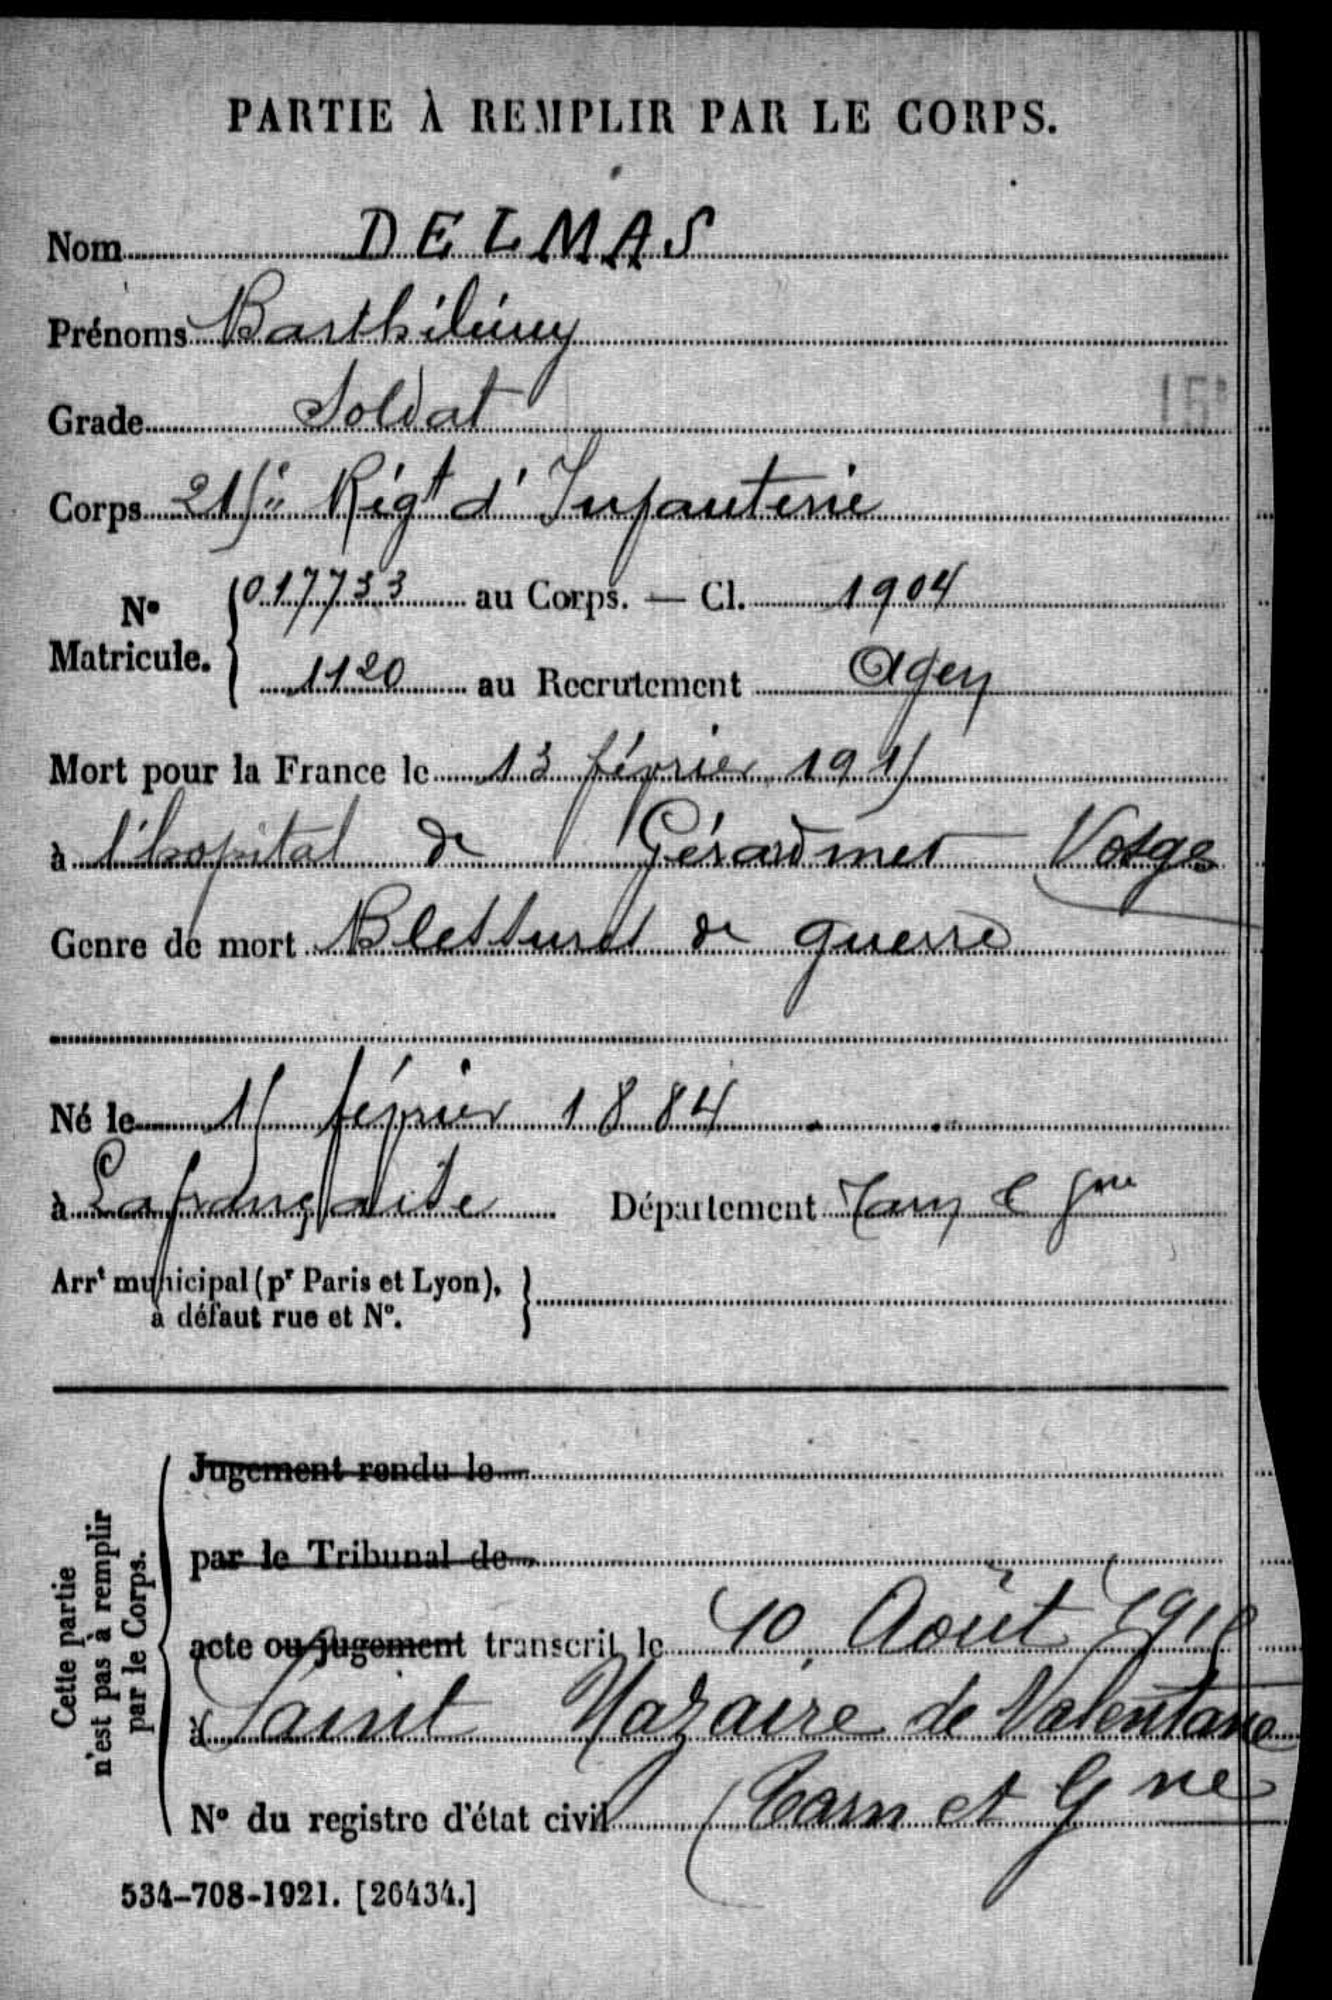 PARTIE À REMPLIR PAR LE CORPS.
Nom DELMAS
Prénoms Barthélémy
Grade Soldat
15
Corps 215e Régt d'Infanterie
N° Matricule. 017733 au Corps. — Cl. 1904
1120 au Recrutement Agen
Mort pour la France le 13 février 1915
à l'hopital de Gérardmer Vosges
Genre de mort Blessures de guerre
Né le 15 février 1884
à Lafrançaise Département Tarn e Gne
Arrt municipal (pr Paris et Lyon),
à défaut rue et N°.
Cette partie
n'est pas à remplir
par le Corps.
Jugement rendu le
par le Tribunal de
acte ou jugement transcrit le 10 Août
à Saint Nazaire de Valentane
N° du registre d'état civil Tarn et Gne
534-708-1921. [26434.]